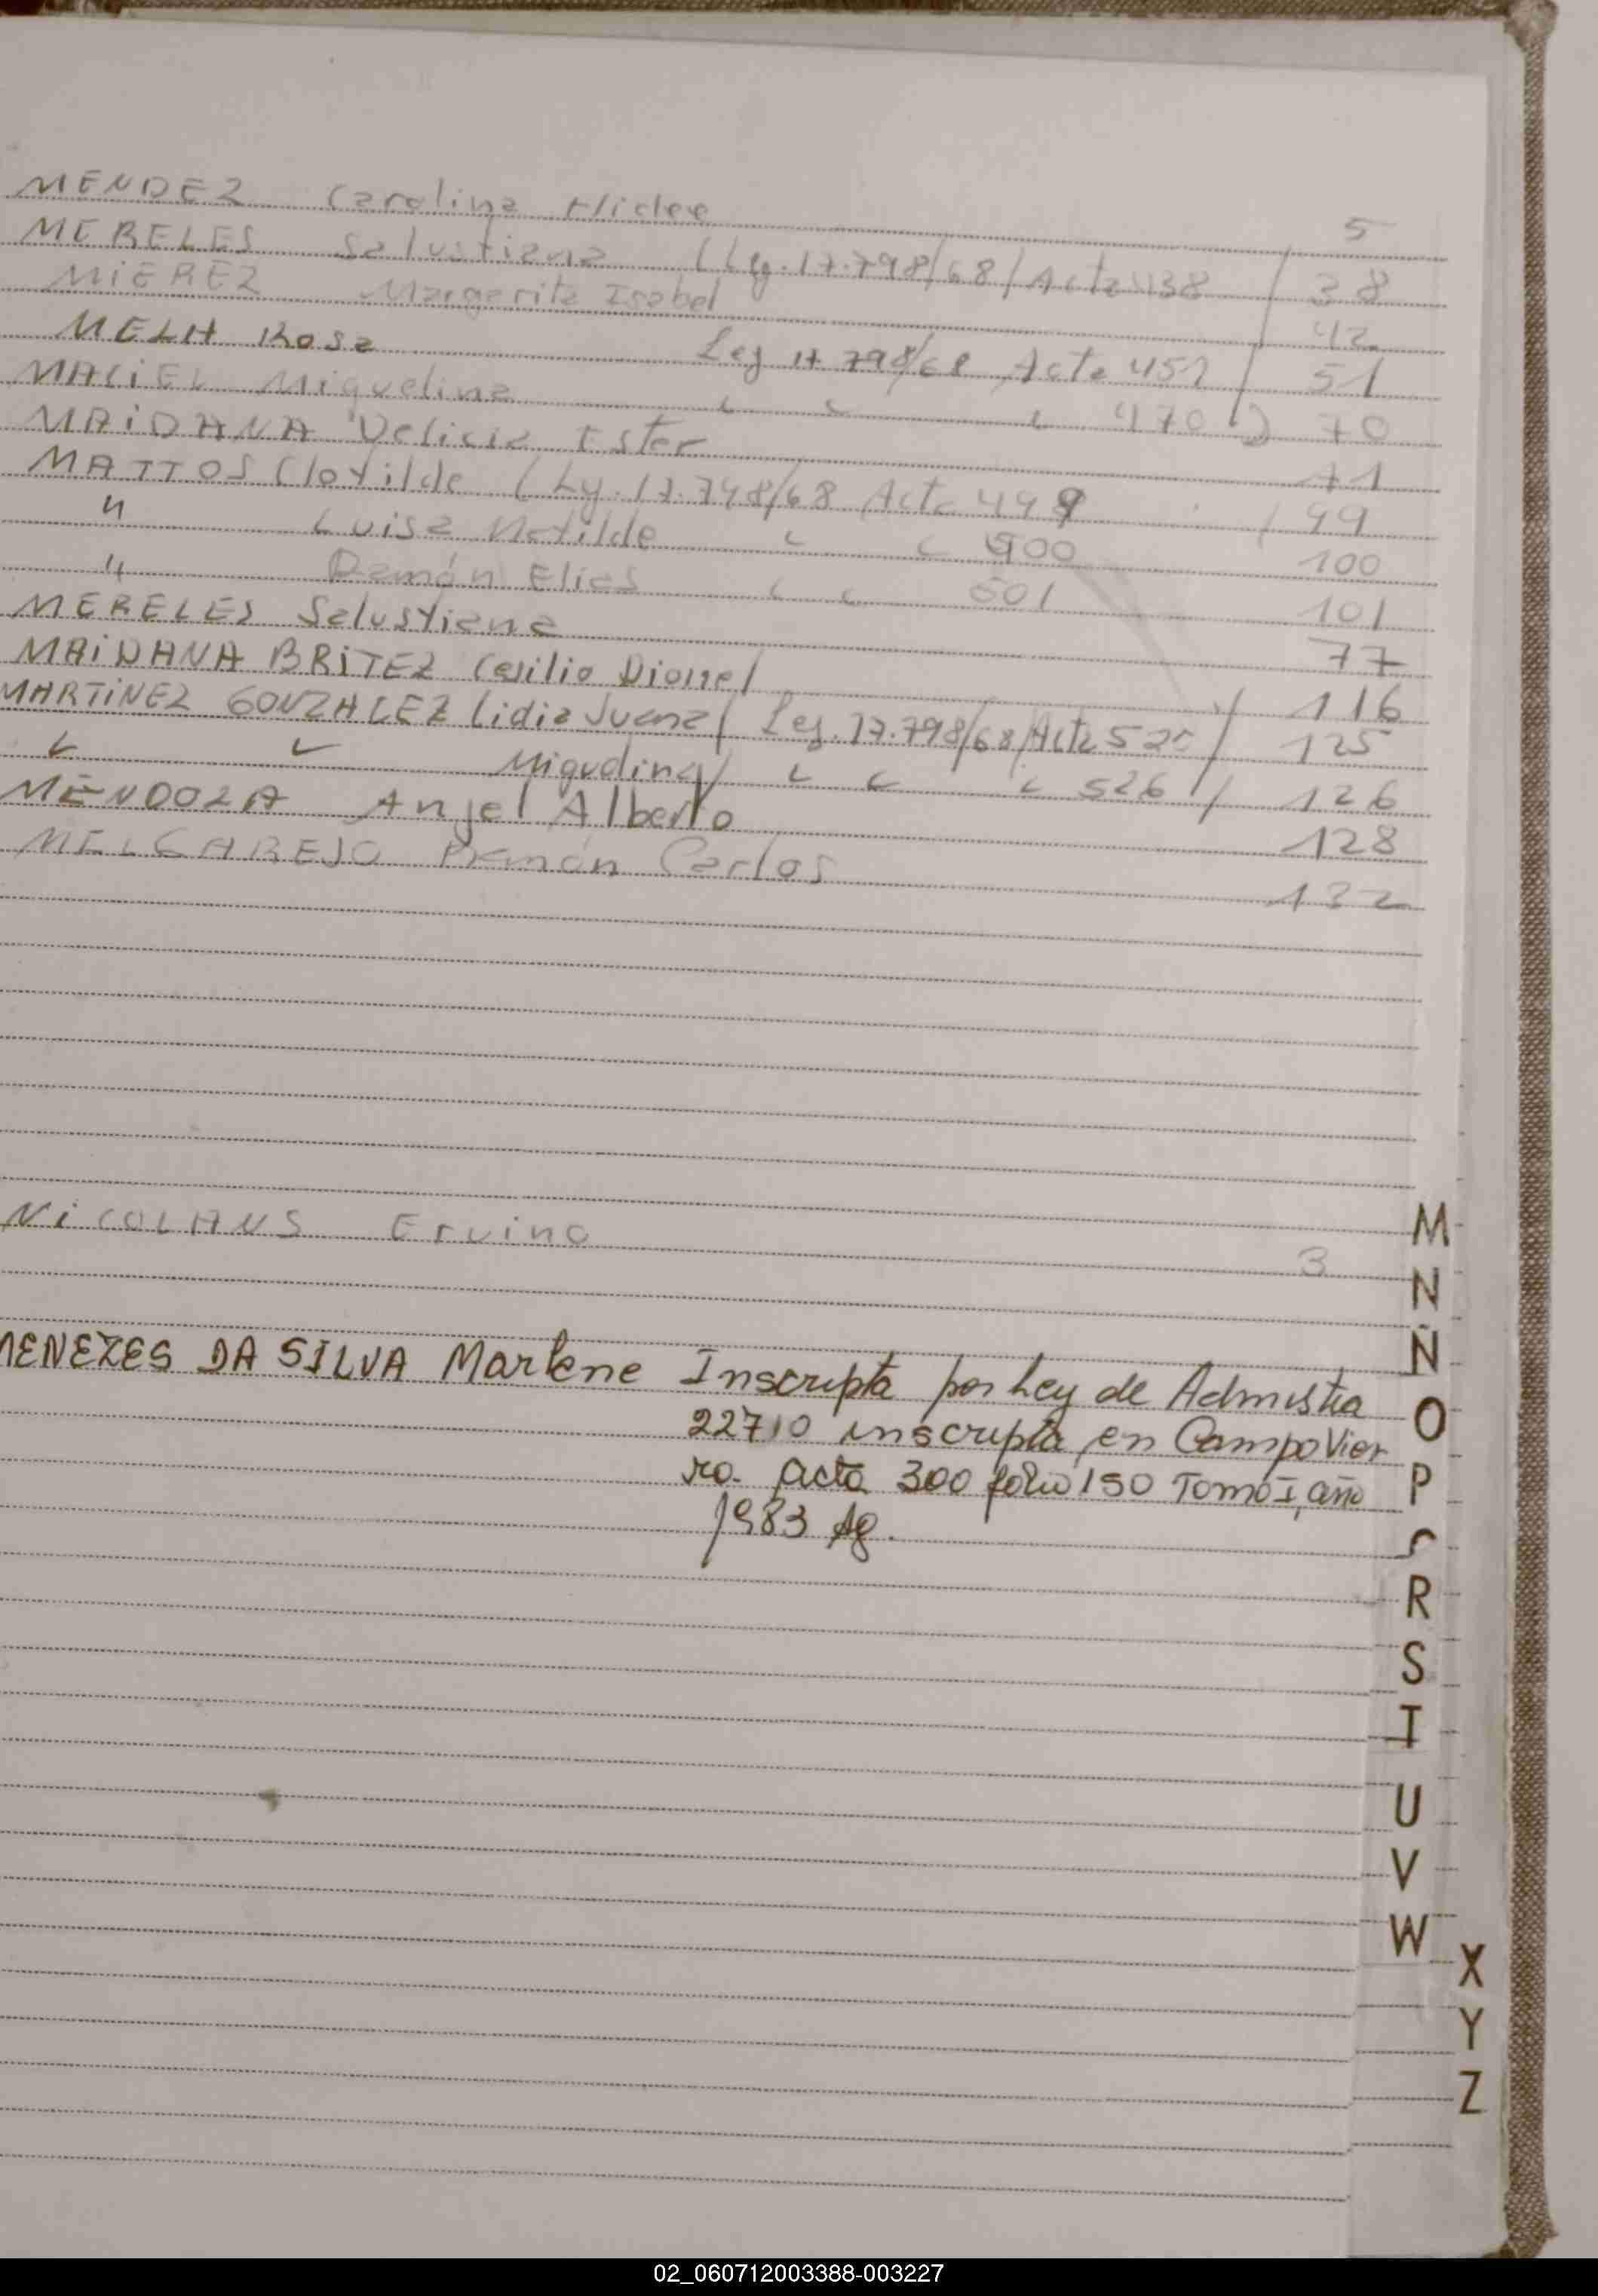 MENDEZ Carolina Hidee 5
MERELES Salustiana (Ley. 17.798/68/Acta 438 / 38
MIEREZ Margarita Isabel 42
MELH Rosa Ley 17.798/68 Acta 451 / 51
MACIEL Miguelina " " " 470 ) 70
MAIDANA Delicia Ester 71
MATTOS Clotilde (Ley. 17.798/68 Acta 499 / 99
" Luisa Matilde " " 500 100
" Ramón Elias " " 501 101
MERELES Salustiana 77
MAIDANA BRITEZ Cecilio Dionel 116
MARTINEZ GONZALEZ Lidia Juana / Ley. 17.798/68/Acta 525 / 125
" " Miguelina / " " " 526 / 126
MENDOZA Anjel Alberto 128
MELGAREJO Ramón Carlos 132
NICOLAUS Ervino 3
MENEZES DA SILVA Marlene Inscripta por Ley de Admistia
22710 inscripta en Campo Vier
ro. acta 300 folio 150 Tomo I, año
1983 Ag.
M
N
Ñ
O
P
R
S
T
U
V
W
X
Y
Z
02_060712003388-003227